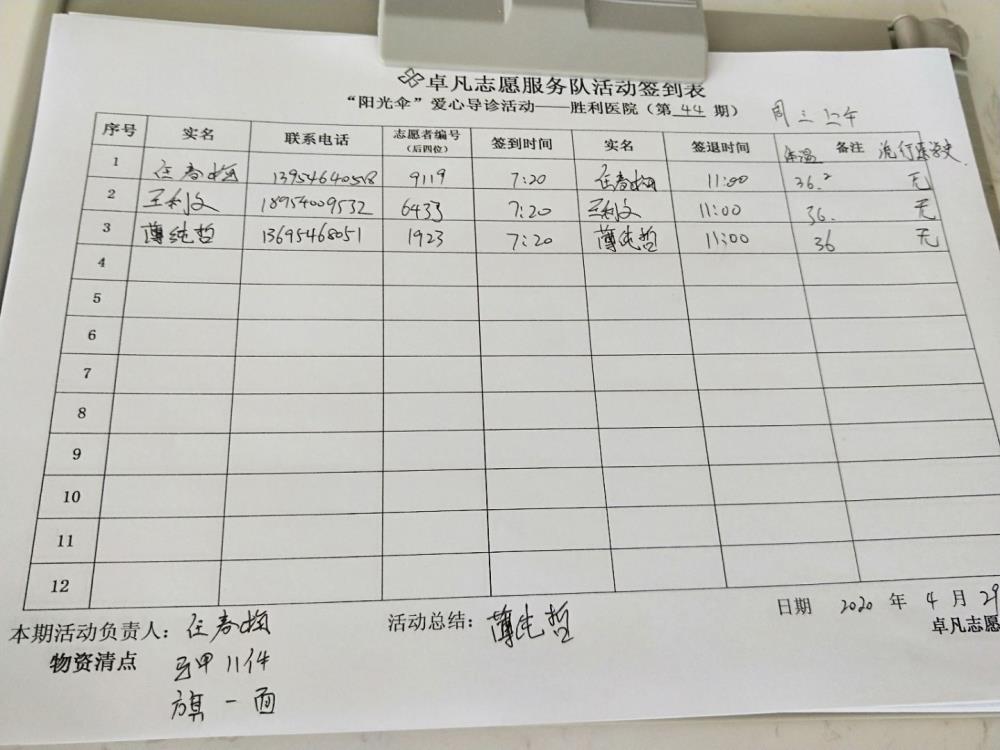 卓凡志愿服务队活动签到表
“阳光伞”爱心导诊活动——胜利医院（第 44 期） 周三上午
序号 实名 联系电话 志愿者编号（后四位） 签到时间 实名 签退时间 体温 备注 流行病学史
1 任春梅 13954640518 9119 7:20 任春梅 11:00 36.2 无
2 王利文 18954009532 6433 7:20 王利文 11:00 36. 无
3 薄纯哲 13695468051 1923 7:20 薄纯哲 11:00 36 无
4
5
6
7
8
9
10
11
12
日期 2020 年 4 月 29
本期活动负责人：任春梅 活动总结：薄纯哲
卓凡志愿
物资清点 马甲 11件
旗 一面